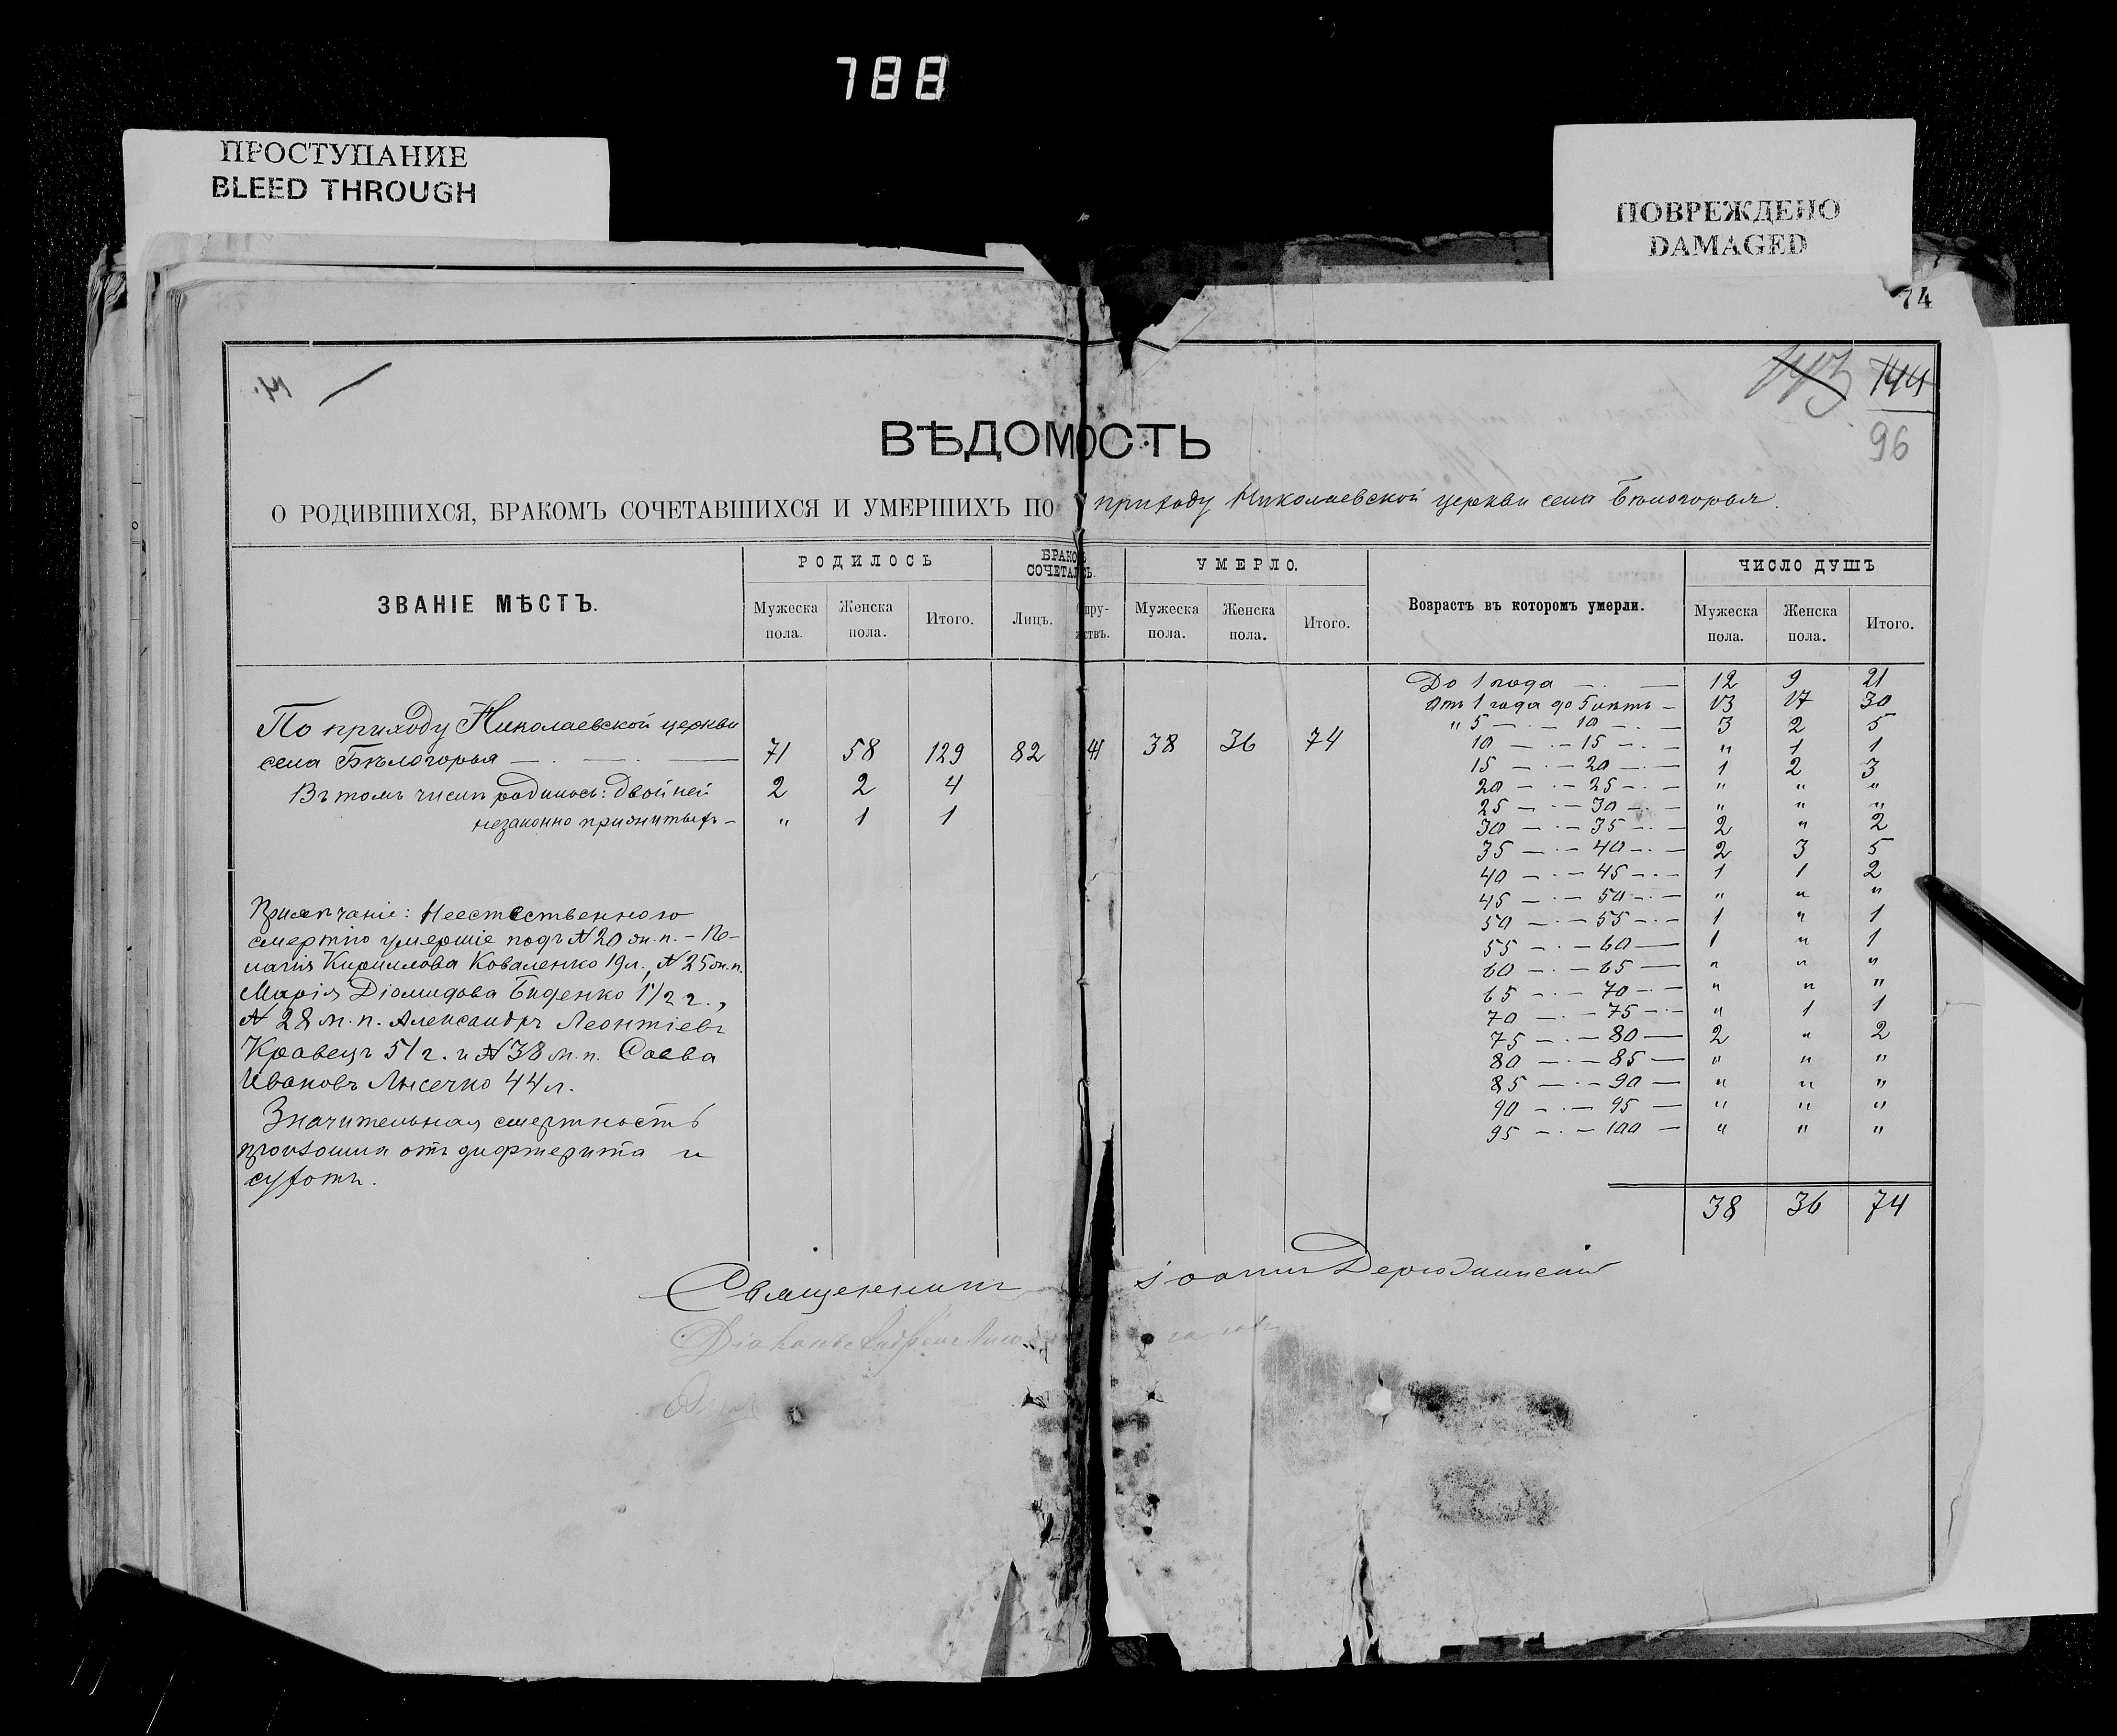 788
ПРОСТУПАНИЕ
BLEED THROUGH
ПОВРЕЖДЕНО
DAMAGED
74
143 144
96
ВѢДОМОСТЬ
О РОДИВШИХСЯ, БРАКОМЪ СОЧЕТАВШИХСЯ И УМЕРШИХЪ ПО приходу Николаевской церкви села Бѣлогорья.
ЗВАНІЕ МѢСТЪ.
РОДИЛОСЬ
Мужеска пола.
Женска пола.
Итого.
БРАКОМЪ СОЧЕТАЛОСЬ.
Лицъ.
УМЕРЛО.
Мужеска пола.
Женска пола.
Итого.
Возрастъ въ которомъ умерли.
ЧИСЛО ДУШЪ
Мужеска пола.
Женска пола.
Итого.
По приходу Николаевской церкви
села Бѣлогорья — 71 58 129 82 41 38 36 74
Въ томъ числѣ родилось: двойней 2 2 4
незаконно прижитыхъ — " 1 1
Примѣчаніе: Неестественною
смертію умершіе подъ № 20 ж. п. – Пе-
лагія Кириллова Коваленко 19 л., № 25 ж. п.
Марія Діомидова Биденко 1 1/2 г.,
№ 28 м. п. Александръ Леонтіевъ
Кравецъ 51 г. и № 38 м. п. Савва
Ивановъ Лысечко 44 л.
Значительная смертность
произошла отъ дифтерита и
сухотъ.
До 1 года — 12 9 21
Отъ 1 года до 5 лѣтъ — 13 17 30
" 5 — 10 — 3 2 5
10 — 15 — " 1 1
15 — 20 — 1 2 3
20 — 25 — " " "
25 — 30 — " " "
30 — 35 — 2 " 2
35 — 40 — 2 3 5
40 — 45 — 1 1 2
45 — 50 — " " "
50 — 55 — 1 " 1
55 — 60 — 1 " 1
60 — 65 — " " "
65 — 70 — " " "
70 — 75 — " 1 1
75 — 80 — 2 " 2
80 — 85 — " " "
85 — 90 — " " "
90 — 95 — " " "
95 — 100 — " " "
38 36 74
Священникъ Іоаннъ
Діаконъ Андрей